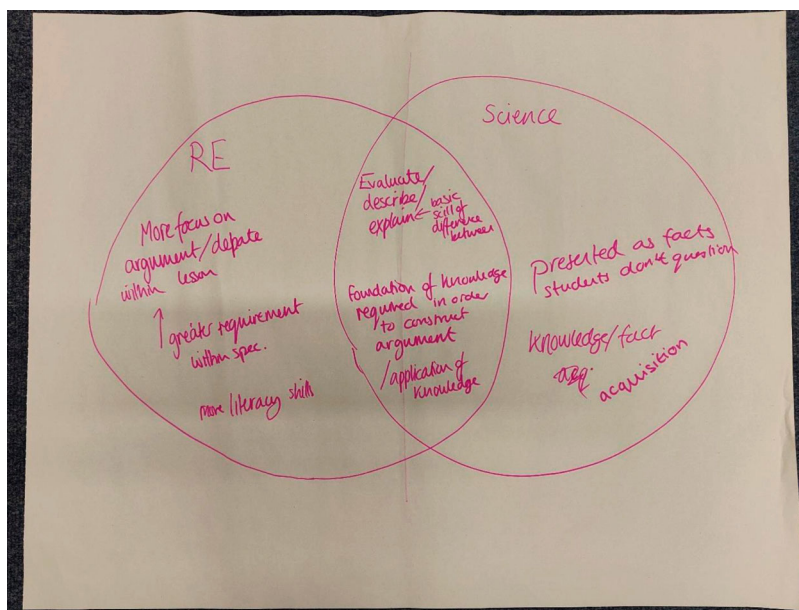 RE
More focus on
argument/debate
within lesson
↑ greater requirement
within spec.
more literacy skills
Evaluate/
describe/
explain ← basic
skill of
difference
between
foundation of knowledge
required in order
to construct
argument
/application of
knowledge
Science
presented as facts
students don't question
knowledge/fact
acquisition